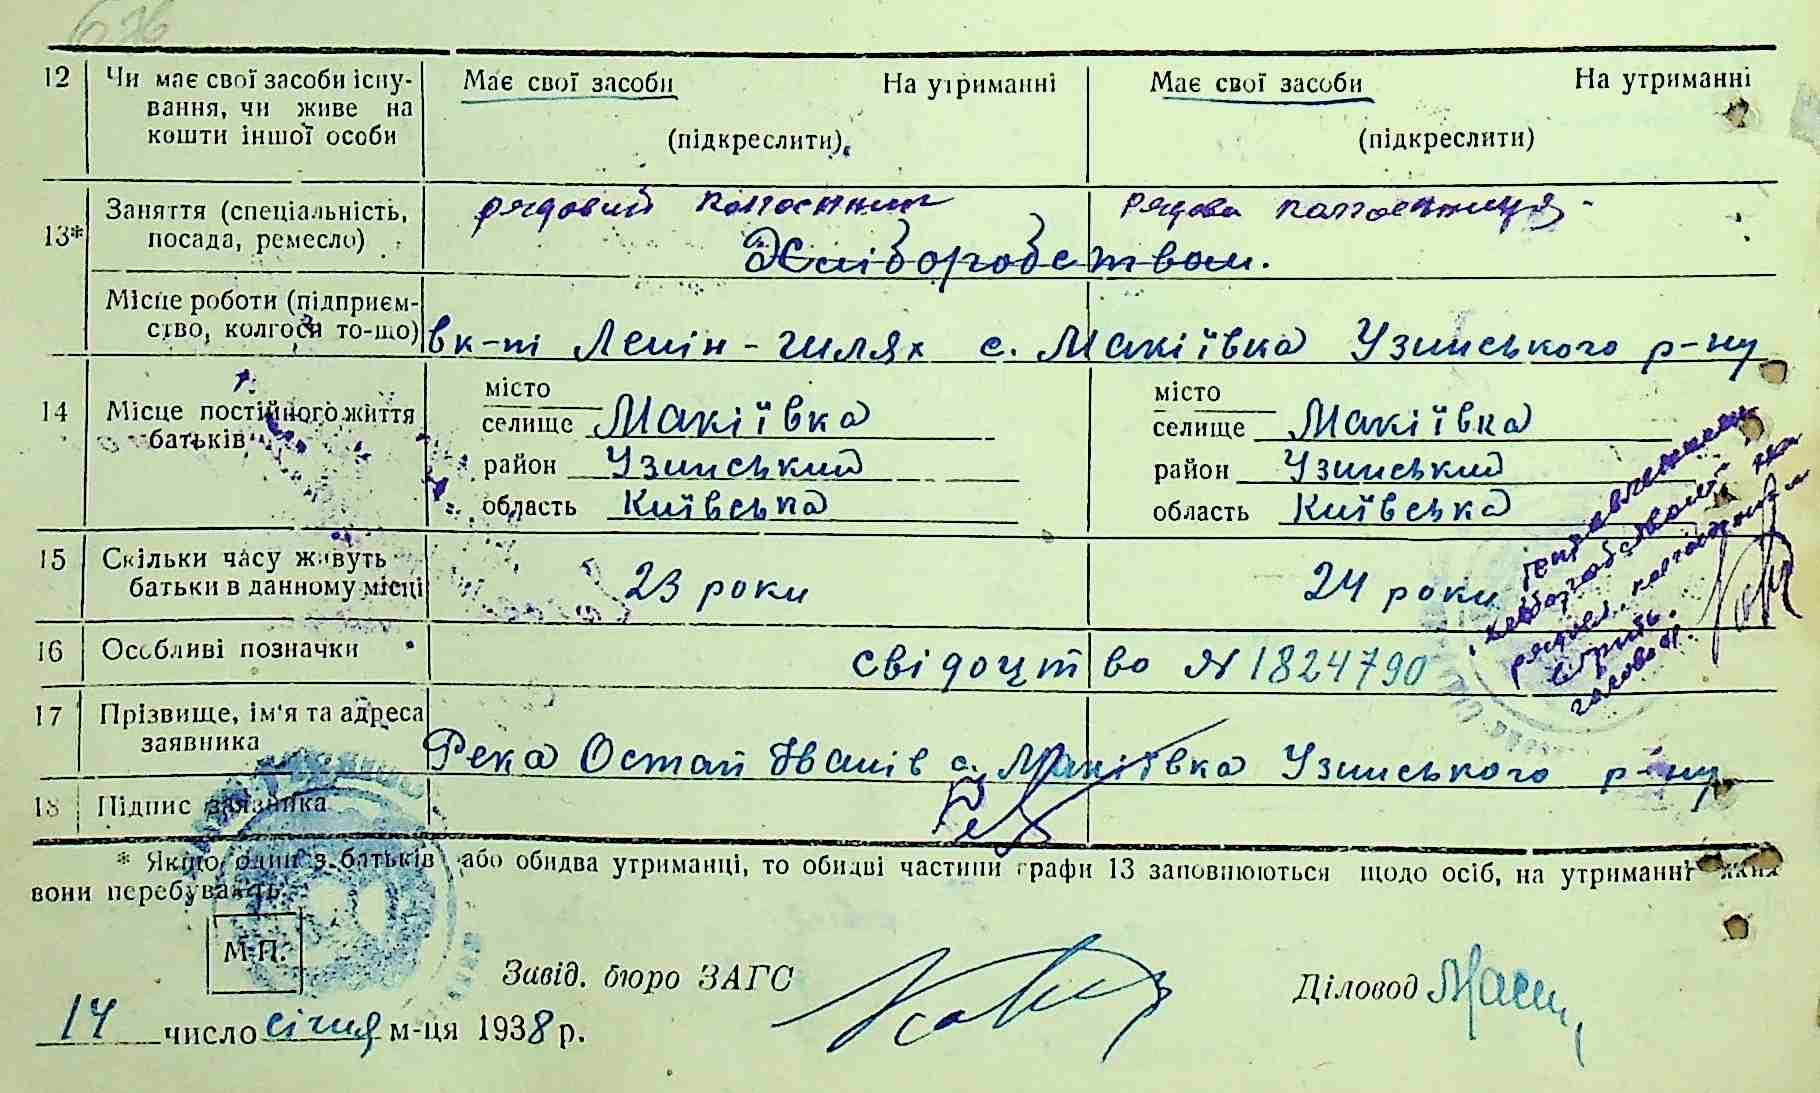 636
12 Чи має свої засоби існу- Має свої засоби На утриманні Має свої засоби На утриманні
вання, чи живе на
кошти іншої особи (підкреслити) (підкреслити)
13* Заняття (спеціальність, рядовий колгоспник рядова колгоспниця
посада, ремесло) Хліборобством.
Місце роботи (підприєм-
ство, колгосп то-що) в к-пі Ленін-шлях с. Макіївка Узинського р-ну
14 Місце постійного життя місто місто
батьків селище Макіївка селище Макіївка
район Узинський район Узинський
область Київська область Київська
15 Скільки часу живуть
батьки в данному місці 23 роки 24 роки
16 Особливі позначки свідоцтво № 1824790
17 Прізвище, ім'я та адреса
заявника Река Остап Іванів с. Макіївка Узинського р-ну
18 Підпис заявника
* Якщо один з батьків або обидва утриманці, то обидві частини графи 13 заповнюються щодо осіб, на утриманні яких
вони перебувають.
М.П.
Завід. бюро ЗАГС Діловод
14 число січня м-ця 1938 р.